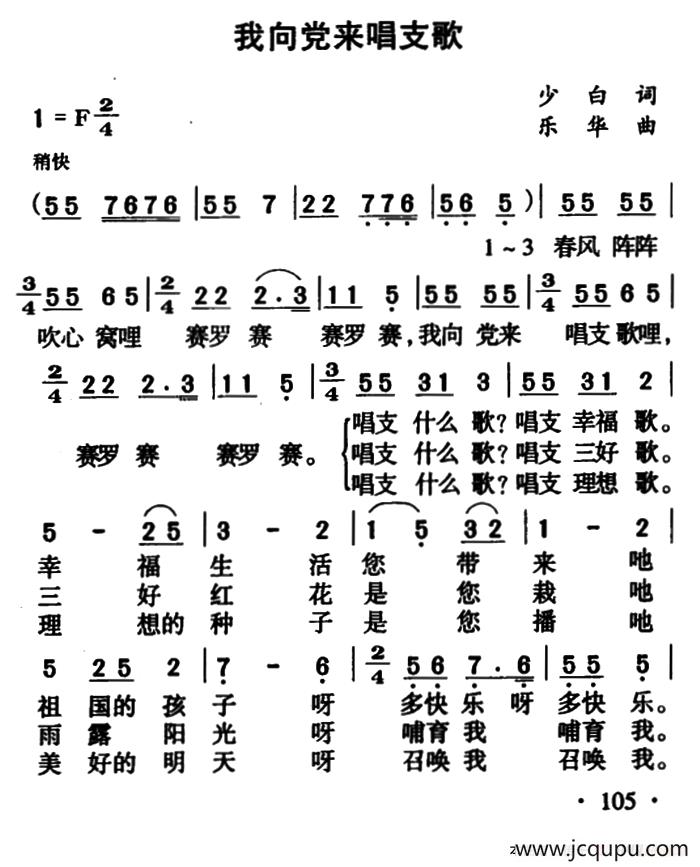 我向党来唱支歌
少白词
1=F 2/4
乐华曲
稍快
(55 7676|55 7|22 776|56 5)|55 55|
1~3 春风 阵阵
3/4 55 65|2/4 22 2.3|11 5|55 55|3/4 55 65|
吹心 窝哩 赛罗 赛 赛罗 赛,我向 党来 唱支 歌哩,
2/4 22 2.3|11 5|3/4 55 31 3|55 31 2|
唱支 什么 歌?唱支 幸福 歌。
赛罗 赛 赛罗 赛。唱支 什么 歌?唱支 三好 歌。
唱支 什么 歌?唱支 理想 歌。
5 - 25|3 - 2|1 5 32|1 - 2|
幸 福 生 活 您 带 来 吔
三 好 红 花 是 您 栽 吔
理 想的 种 子 是 您 播 吔
5 25 2|7 - 6|2/4 56 7.6|55 5|
祖 国的 孩 子 呀 多快 乐 呀 多快 乐。
雨 露 阳 光 呀 哺育 我 哺育 我。
美 好的 明 天 呀 召唤 我 召唤 我。
·105·
www.jcqupu.com